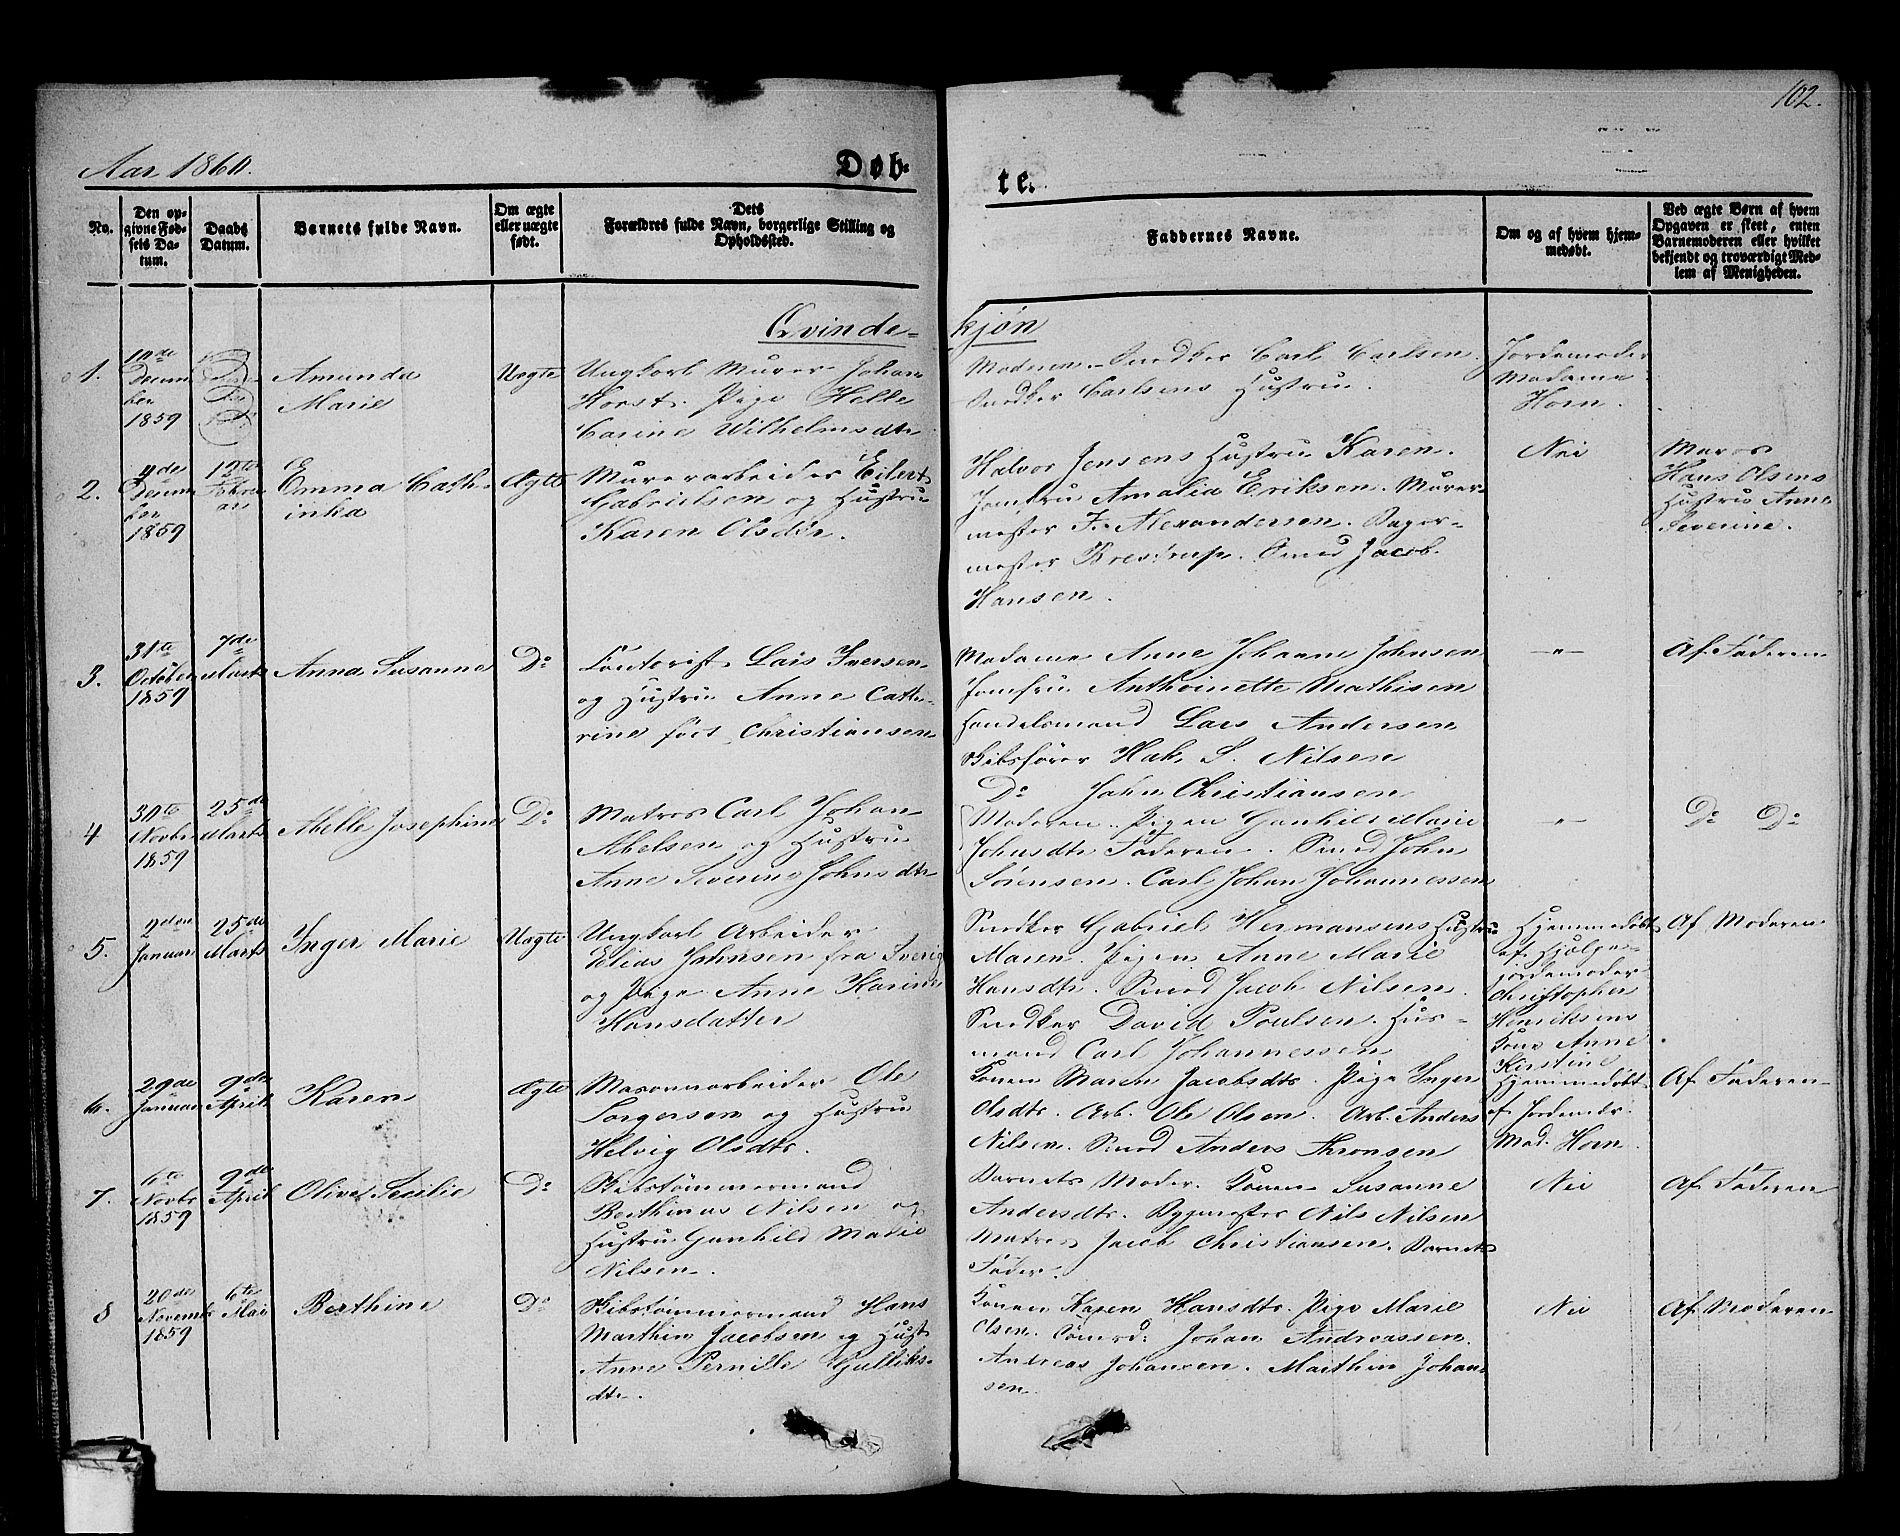 102.
Aar 1860.
Døb-
te.
No.
Den op-
givne Fød-
sels Da-
tum.
Daabs
Datum.
Barnets fulde Navn.
Om ægte
eller uægte
født.
Dets
Forældres fulde Navn, borgerlige Stilling og
Opholdssted.
Faddernes Navne.
Om og af hvem hjem-
medøbt.
Ved ægte Børn af hvem
Opgaven er skeet, enten
Barnemoderen eller hvilket
bekjendt og troværdigt Med-
lem af Menigheden.
Qvinde-
kjøn
1.
Decem
ber
1859
Amunda
Marie
Uægte
Ungkarl Murer Johan
Horst. Pige Helle
Carine Wilhelmsdtr.
Moderen. Snedker Carl Carlsen.
Snedker Carlsens Hustru.
Jordemoder
Madame
Horn.
2.
Decem
ber
1859
12te
Febru
ari
Emma Cath-
inka
Ægte
Murerarbeider Eilert
Gabrielsen og Hustru
Karen Olsdtr.
Halvor Jensens Hustru Karen.
Jomfru Amalia Eriksen. Murer-
mester F. Alexandersen. Bager-
mester Brestrup. Smed Jacob
Hansen.
Nei
Murer
Hans Olsens
Hustru Anne
Severine.
3.
31te
October
1859
7de
Marts
Anna Susanne
Do
Contorist Lars Iversen
og Hustru Anne Cath-
rine født Christiansen
Madame Anne Johanne Johnsen
Jomfru Anthoinette Mathisen
Handelsmand Lars Andersen
Skibsfører Hak. S. Nilsen
Do John Christiansen
-"-
Af Faderen
4
30te
Novbr
1859
25de
Marts
Abelle Josephine
Do
Matros Carl Johan
Abelsen og Hustru
Anne Severine Johnsdtr
Moderen. Pigen Gunhild Marie
Johnsdtr Faderen. Smed John
Sørensen. Carl Johan Johannessen
-"-
Do Do
5.
2den
Januar
25de
Marts
Inger Marie
Uægte
Ungkarl Arbeider
Elias Johnsen fra Sverig
og Pige Anne Karine
Hansdatter
Snedker Gabriel Hermansens Hustru
Maren. Pigen Anne Marie
Hansdtr. Smed Jacob Nilsen.
Snedker David Poulsen. Hus-
mand Carl Johannessen
Hjemmedøbt
af Hjælpe-
jordemoder
Christopher
Henriksens
Kone Anne
Kirstine
Af Moderen
6.
29de
Januar
9de
April
Karen
Ægte
Masovnarbeider Ole
Torgersen og Hustru
Helvig Olsdtr.
Konen Maren Jacobsdtr. Pige Inger
Olsdtr. Arb. Ole Olsen. Arb. Anders
Nilsen. Smed Anders Thronsen
Hjemmedøbt
af Jordemdr.
Mad. Horn.
Af Faderen
7.
6te
Novbr
1859
9de
April
Olive Secilie
Do
Skibstømmermand
Berthinus Nilsen og
Hustru Gunhild Marie
Nilsen.
Barnets Moder. Konen Susanne
Andersdtr. Bygmester Nils Nilsen
Matros Jacob Christiansen. Barnets
Fader.
Nei
Af Faderen
8
20de
Novembr
1859
6te
Mai
Berthine
Do
Skibstømmermand Hans
Marthin Jacobsen og Hust
Anne Pernille Gulliks-
dtr.
Konen Karen Hansdtr. Pige Marie
Olsen. Sømd: Johan Andreassen.
Andreas Johansen. Marthin Johan-
sen.
Nei
Af Moderen